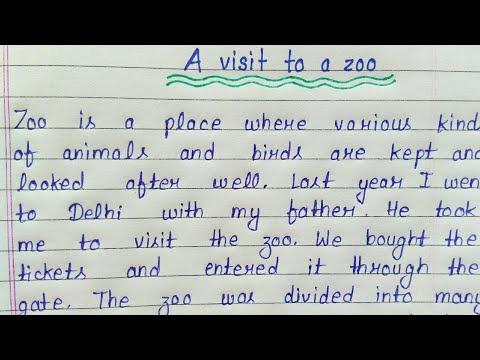 A visit to a zoo
Zoo is a place where various kind
of animals and birds are kept and
looked after well. Last year I wen
to Delhi with my father. He took
me to visit the zoo. We bought the
tickets and entered it through the
gate. The zoo was divided into many